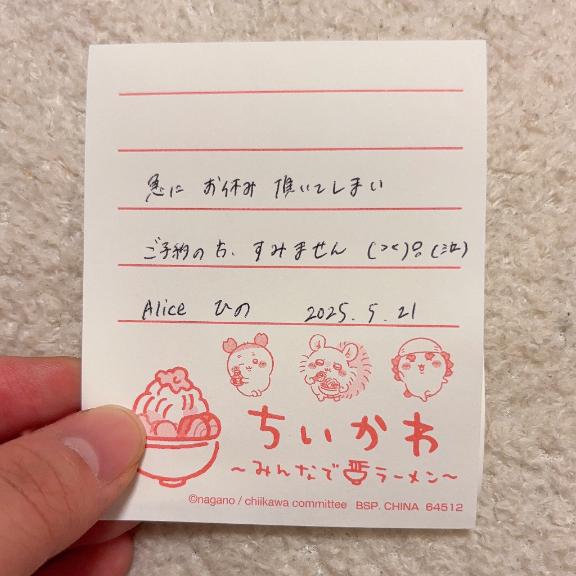 急に お休み 頂いてしまい
ご予約の方、すみません
Alice ひの 2025.5.21
ちいかわ
~みんなでラーメン~
©nagano / chiikawa committee BSP. CHINA 64512